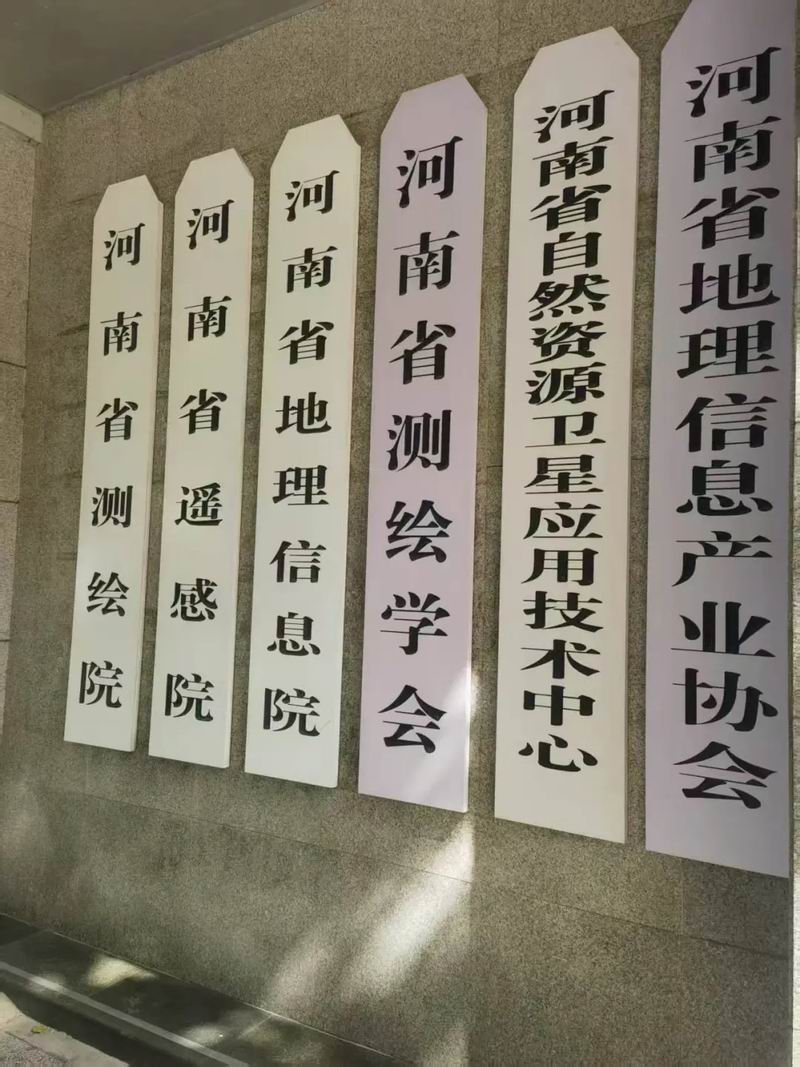 河南省测绘院
河南省遥感院
河南省地理信息院
河南省测绘学会
河南省自然资源卫星应用技术中心
河南省地理信息产业协会